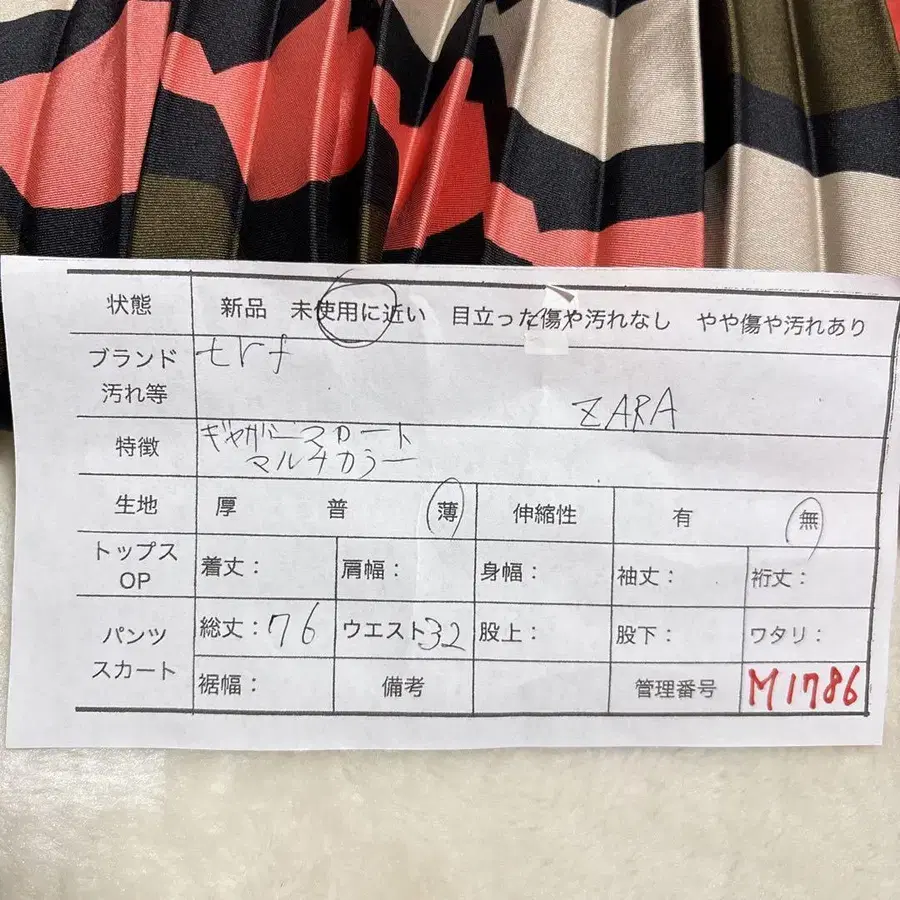 状態 新品 未使用に近い 目立った傷や汚れなし やや傷や汚れあり
ブランド trf
汚れ等 ZARA
特徴 ギャザースカート
マルチカラー
生地 厚 普 薄 伸縮性 有 無
トップス
OP 着丈: 肩幅: 身幅: 袖丈: 裄丈:
パンツ
スカート 総丈:76 ウエスト32 股上: 股下: ワタリ:
裾幅: 備考 管理番号 M1786